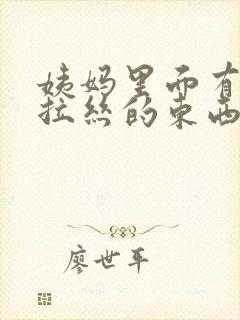 姨妈里面有
拉丝的东西
廖世平